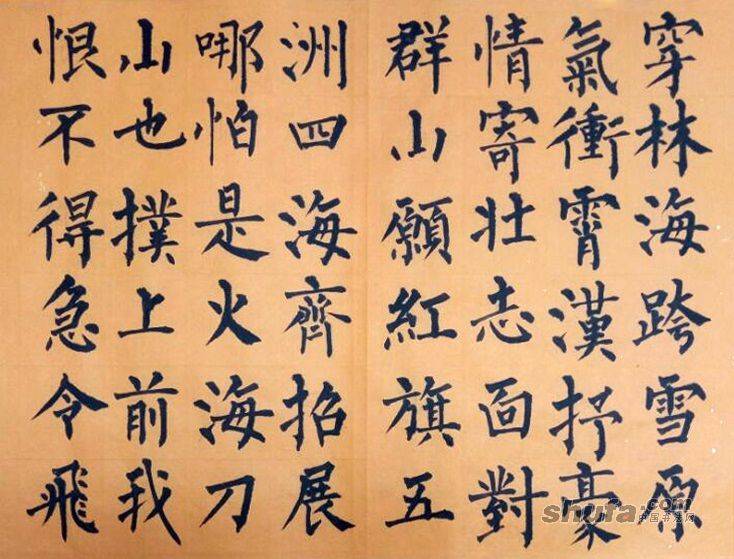 穿林海跨雪原
氣衝霄漢抒豪
情寄壯志面對
群山願紅旗五
洲四海齊招展
哪怕是火海刀
山也撲上前我
恨不得急令飛
shufa.com
中国书法网